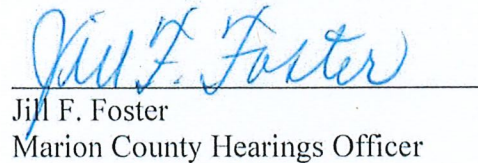 Jill F. Foster
Jill F. Foster
Marion County Hearings Officer